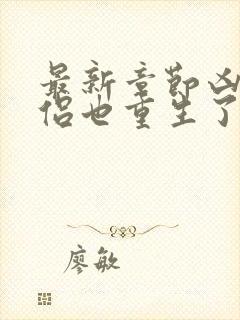 最新章节凶
侣也重生了
廖敏